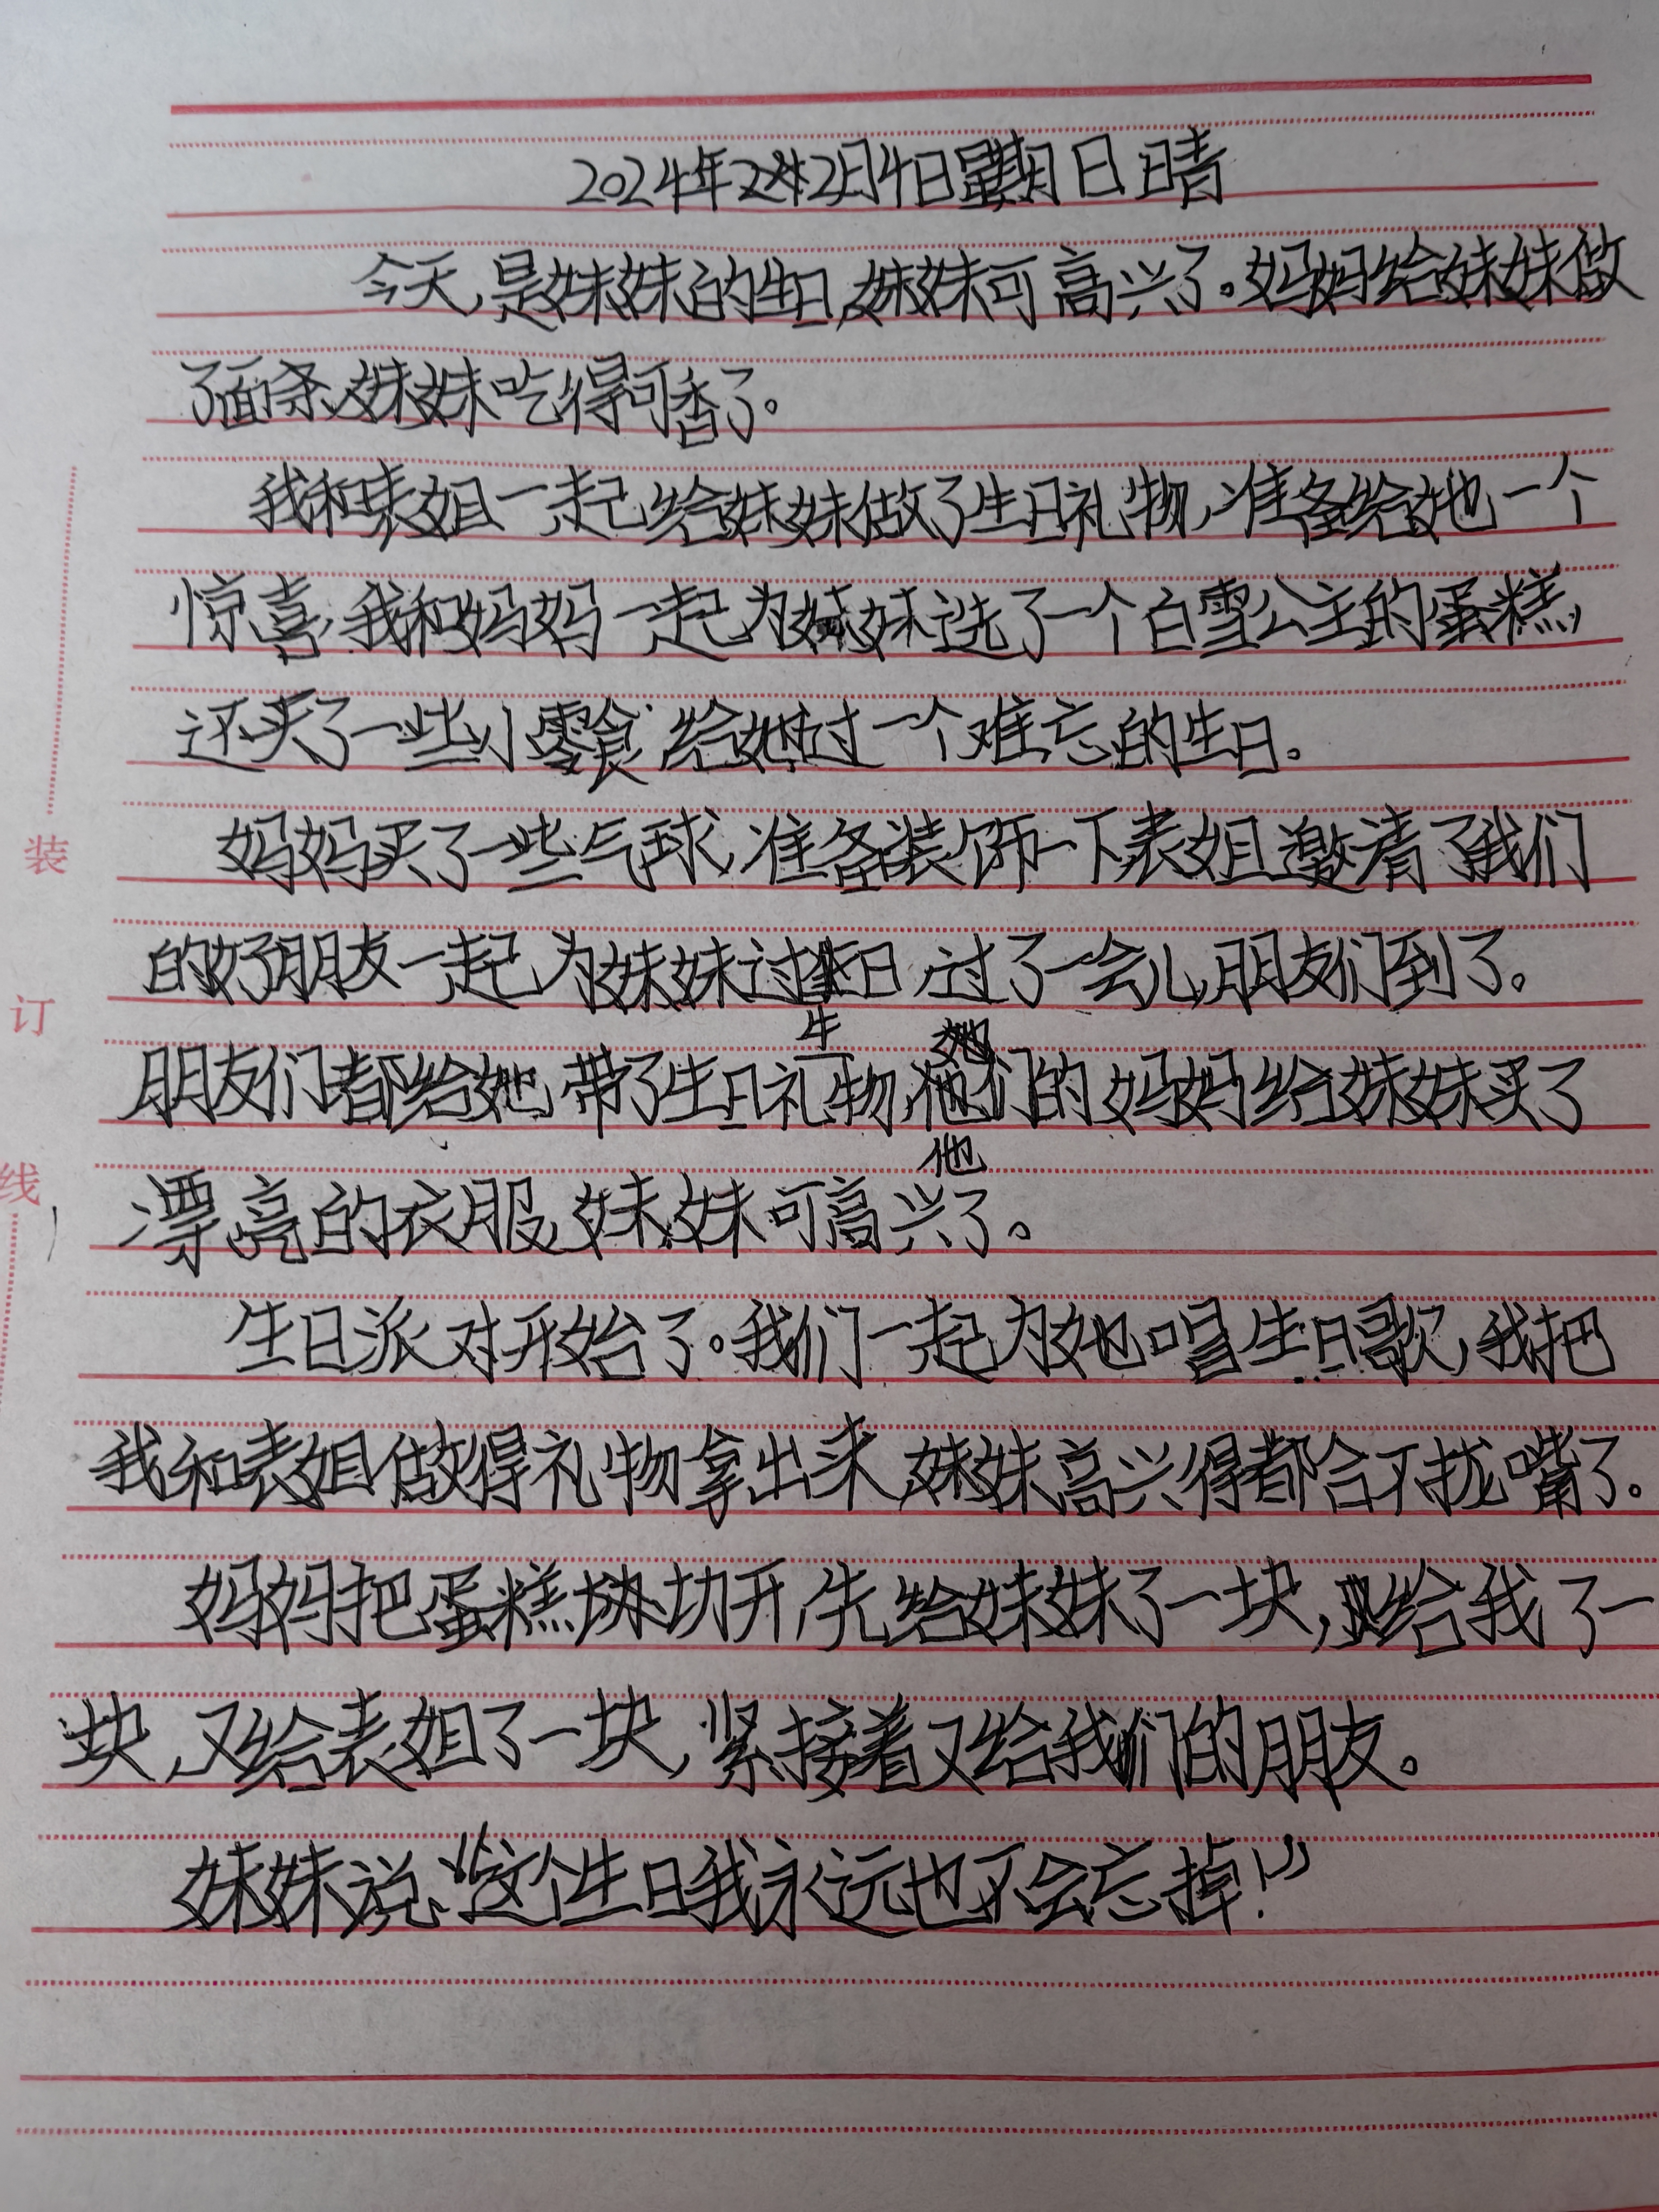 2024年2月4日星期日 晴
今天,是妹妹的生日,妹妹可高兴了。妈妈给妹妹做
了面条,妹妹吃得可香了。
我和表姐一起给妹妹做了生日礼物,准备给她一个
惊喜,我和妈妈一起为妹妹选了一个白雪公主的蛋糕,
还买了一些小零食,给她过一个难忘的生日。
妈妈买了一些气球,准备装饰一下,表姐邀请了我们
的好朋友一起为妹妹过生日,过了一会儿,朋友们到了。
生
朋友们都给她带了生日礼物,他们的妈妈给妹妹买了
他
漂亮的衣服,妹妹可高兴了。
生日派对开始了。我们一起为她唱生日歌,我把
我和表姐做得礼物拿出来,妹妹高兴得都合不拢嘴了。
妈妈把蛋糕切开,先给妹妹了一块,又给我了一
块,又给表姐了一块,紧接着又给我们的朋友。
妹妹说,“这个生日我永远也不会忘掉!”
装
订
线